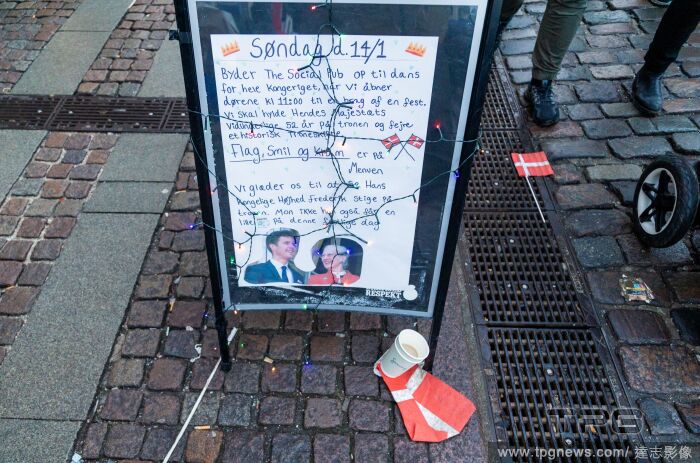 Søndag d. 14/1
Byder The Social Pub op til dans
for hele Kongeriget, når vi åbner
dørene kl 11:00 til en af en fest.
Vi skal hylde Hendes Majestæts
vidunderlige 52 år på tronen og fejre
et historisk Tronskifte
Flag, Smil og er på
Menuen
Vi glæder os til at se Hans
Kongelige Højhed Frederik stige på
tronen. Mon ikke vi også får en
på denne dag
RESPEKT
TPG
www.tpgnews.com/ 達志影像